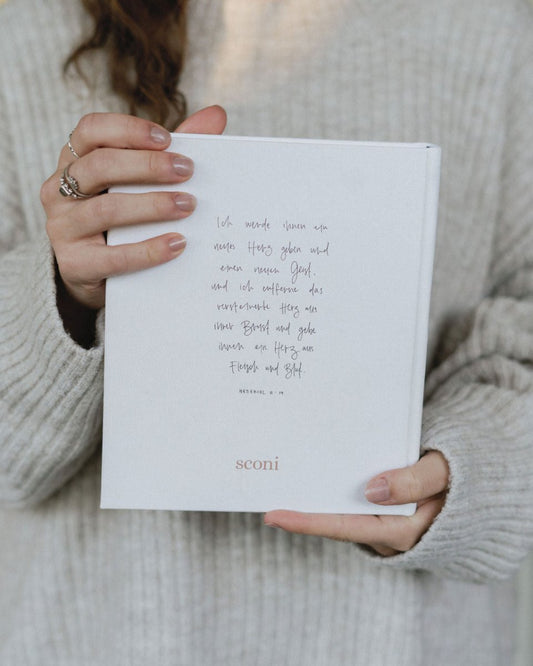 Ich werde ihnen ein
neues Herz geben und
einen neuen Geist,
und ich entferne das
versteinerte Herz aus
ihrer Brust und gebe
ihnen ein Herz aus
Fleisch und Blut.
HESEKIEL 11 - 19
sconi